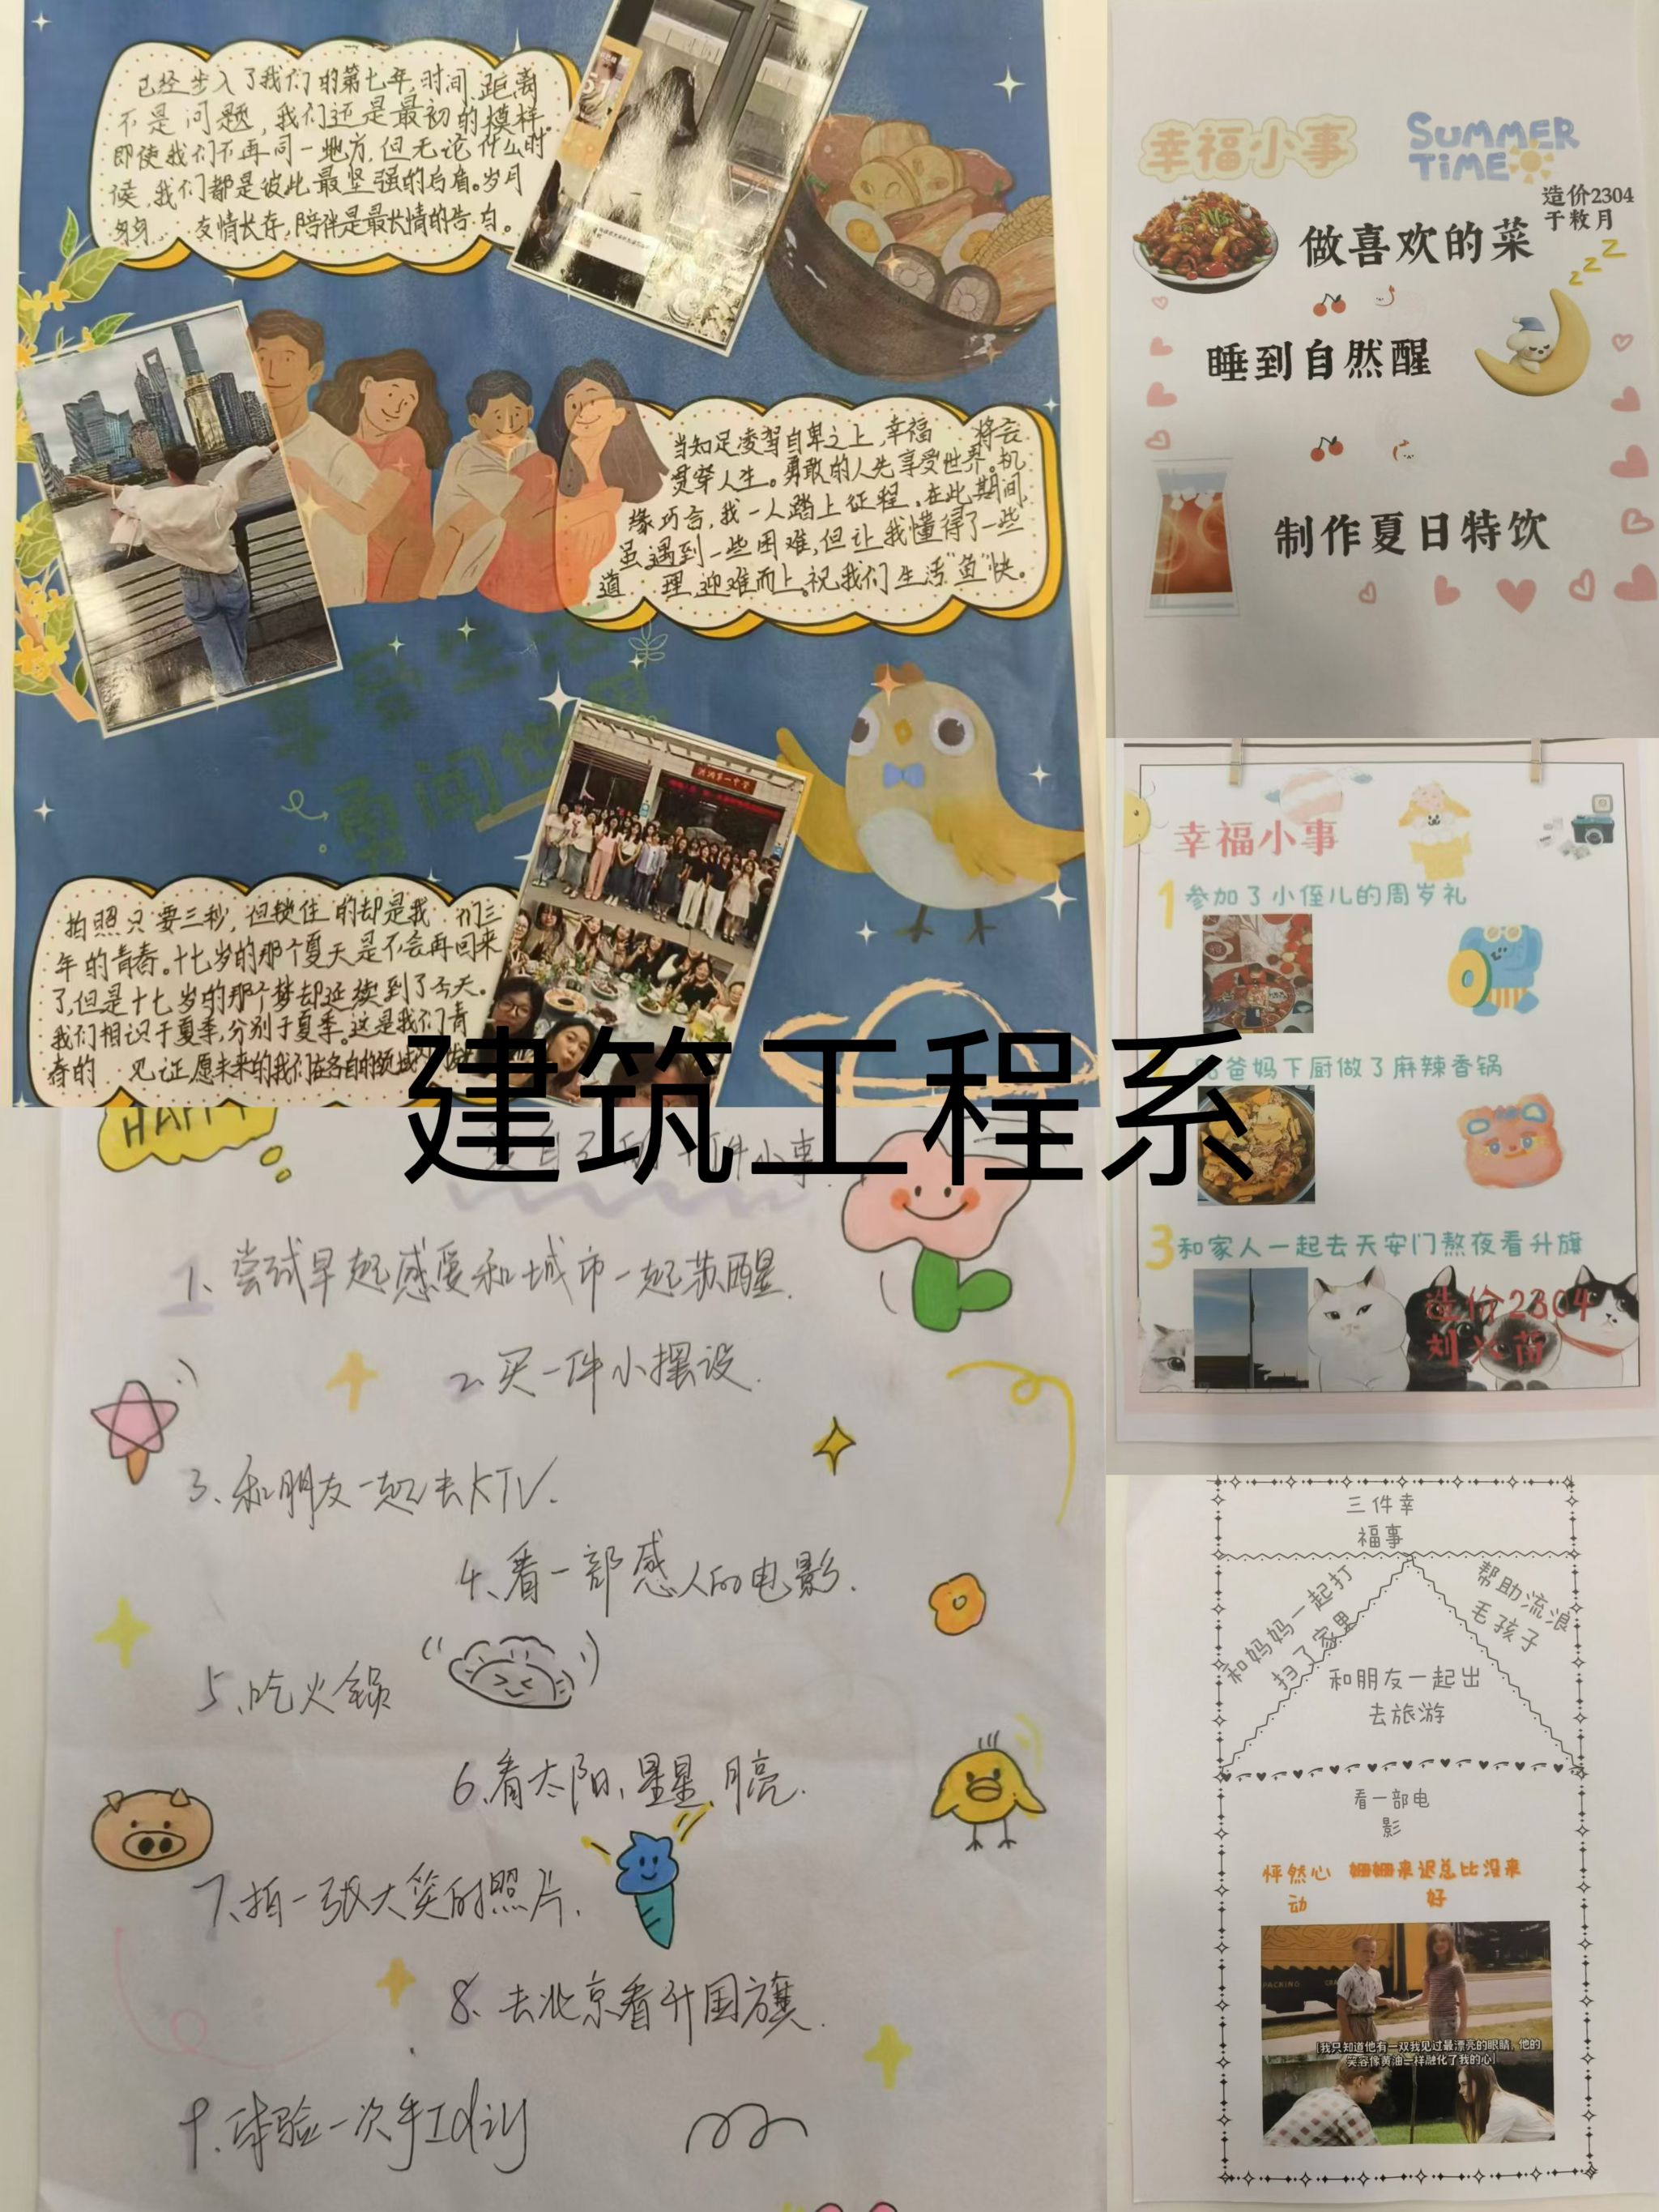 已经步入了我们的第七年,时间,距离
不是问题,我们还是最初的模样.
即使我们不再同一地方,但无论什么时
候,我们都是彼此最坚强的后盾。岁月
友情长存,陪伴是最长情的告白。
当知足凌驾自卑之上,幸福 将会
贯穿人生。勇敢的人先享受世界。机
缘巧合,我一人踏上征程,在此期间,
虽遇到一些困难,但让我懂得了一些
道 理,迎难而上。祝我们生活"鱼"快。
享受生活
勇闯世界
拍照只要三秒,但锁住的却是我 们三
年的青春。十七岁的那个夏天是不会再回来
了,但是十七岁的那个梦却延续到了今天。
我们相识于夏季,分别于夏季。这是我们青
春的 见证,愿未来的我们在各自的领域
建筑工程系
HAPPY
件小事
1、尝试早起感受和城市一起苏醒.
2、买一件小摆设.
3、和朋友一起去KTV.
4、看一部感人的电影.
5、吃火锅
6、看太阳、星星、月亮.
7、拍一张大笑的照片.
8、去北京看升国旗.
9、体验一次手工diy
幸福小事
SUMMER
TIME
造价2304
于敉月
做喜欢的菜
zzz
睡到自然醒
制作夏日特饮
幸福小事
1 参加了小侄儿的周岁礼
爸妈下厨做了麻辣香锅
3 和家人一起去天安门熬夜看升旗
造价2304
刘兴苗
三件幸
福事
和妈妈一起打
扫了家里
帮助流浪
毛孩子
和朋友一起出
去旅游
看一部电
影
怦然心
动
姗姗来迟总比没来
好
[我只知道他有一双我见过最漂亮的眼睛，他的
笑容像黄油一样融化了我的心]